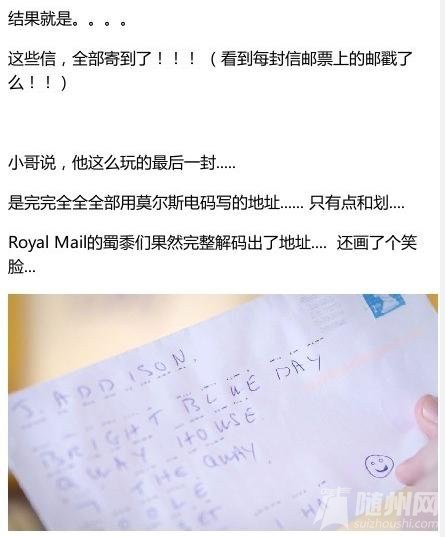 结果就是。。。。
这些信，全部寄到了！！！（看到每封信邮票上的邮戳了
么！！）
小哥说，他这么玩的最后一封.....
是完完全全全部用莫尔斯电码写的地址...... 只有点和划....
Royal Mail的蜀黍们果然完整解码出了地址.... 还画了个笑
脸...
J. ADDISON.
BRIGHT BLUE DAY
QUAY HOUSE
THE QUAY
随州网
suizhoushi.com